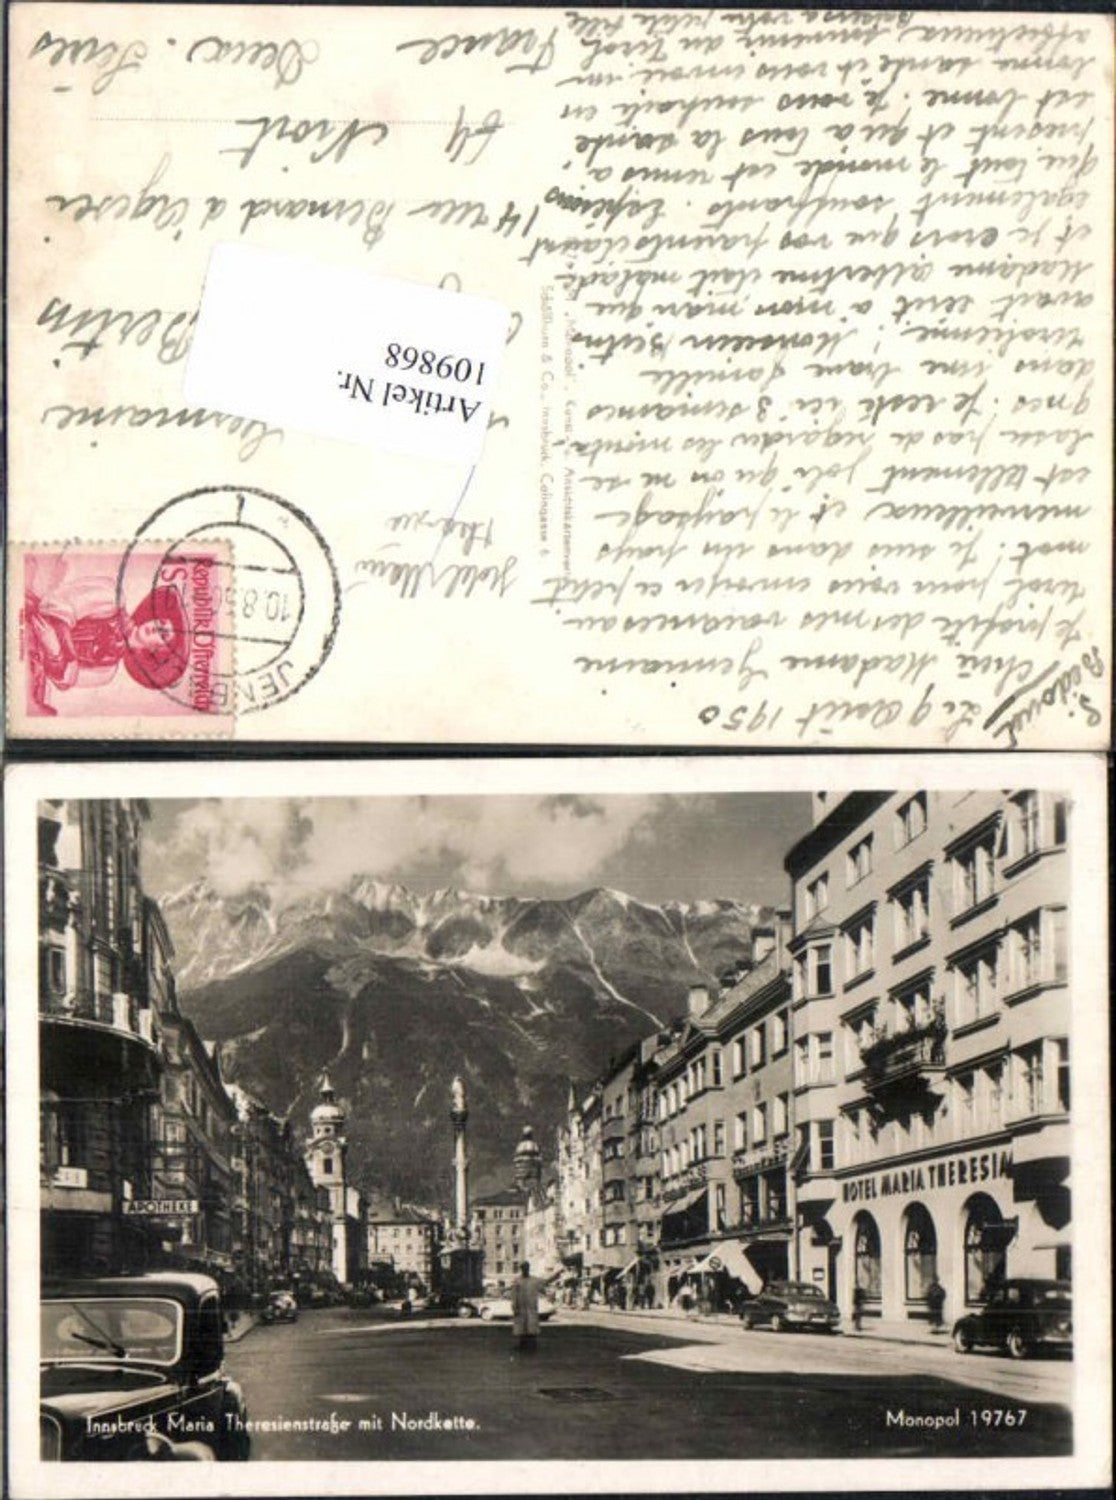 Le 9 Août 1950
Chère Madame Germaine
Je profite de mes vacances au
tirol pour vous envoyer ce petit
mot. Je suis dans un pays
merveilleux et le paysage
est tellement joli qu'on ne se
lasse pas de regarder les monta-
gnes. Je reste ici 3 semaines
dans une brave famille
tirolienne. Monsieur Bertin
avait écrit à mon mari que
Madame Albertine était malade
et je crois que vos parents étaient
également souffrants. Espérons
que tout le monde est remis à
présent et qu'à tous la santé
est bonne. Je vous souhaite en
bonne santé et vous envoie un
affectueux souvenir du Tirol
Baisers à votre petite fille
Germaine
Bertin
14 rue Bernard d'Agesci
Niort
Deux-Sèvres
France
Schöllhorn & Co., Innsbruck, Colingasse 6
Artikel Nr.
109868
Republik Österreich
1 S
10.8.50
JENB
APOTHEKE
HOTEL MARIA THERESIA
Innsbruck Maria Theresienstraße mit Nordkette.
Monopol 19767